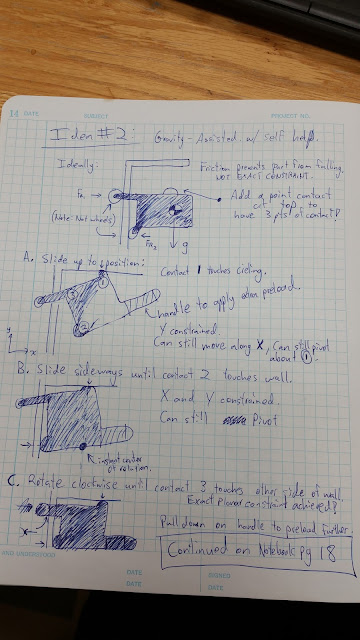 14 DATE SUBJECT PROJECT NO.
Idea #2: Gravity-Assisted w/ self help.
Ideally:
Friction prevents part from falling.
NOT EXACT CONSTRAINT.
FR1
(Note: Not wheels)
Add a point contact
at top to
have 3 pts of contact?
FR2
g
A. Slide up to position:
Contact 1 touches cieling.
1
3
2
handle to apply extra preload.
Y constrained.
Can still move along X, Can still pivot
about 1.
y
x
B. Slide sideways until contact 2 touches wall.
X and Y constrained.
Can still Pivot
instant center
of rotation.
C. Rotate clockwise until contact 3 touches other side of wall.
Exact planar constraint achieved?
X
Pull down on handle to preload further
Continued on Notebook pg 18
AND UNDERSTOOD
DATE
DATE
SIGNED
DATE
DATE